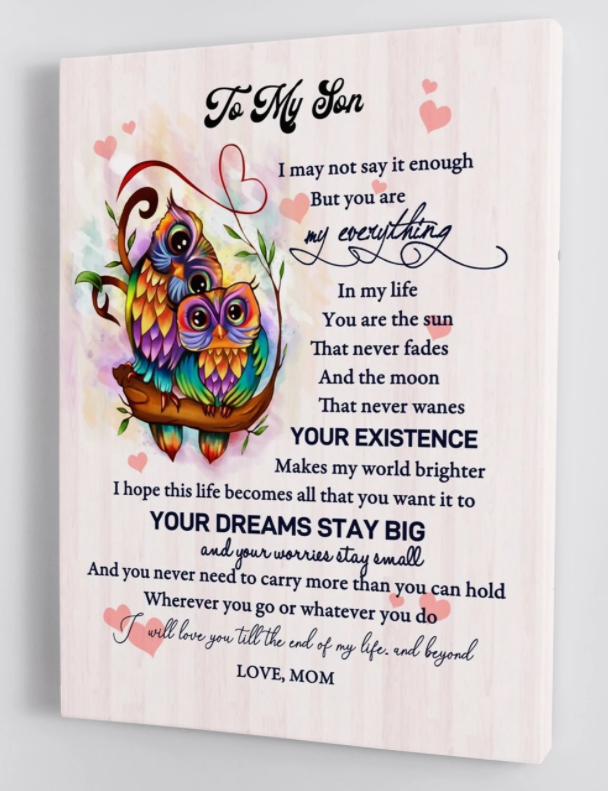 To My Son
I may not say it enough
But you are
my everything
In my life
You are the sun
That never fades
And the moon
That never wanes
YOUR EXISTENCE
Makes my world brighter
I hope this life becomes all that you want it to
YOUR DREAMS STAY BIG
and your worries stay small
And you never need to carry more than you can hold
Wherever you go or whatever you do
I will love you till the end of my life. and beyond
LOVE, MOM